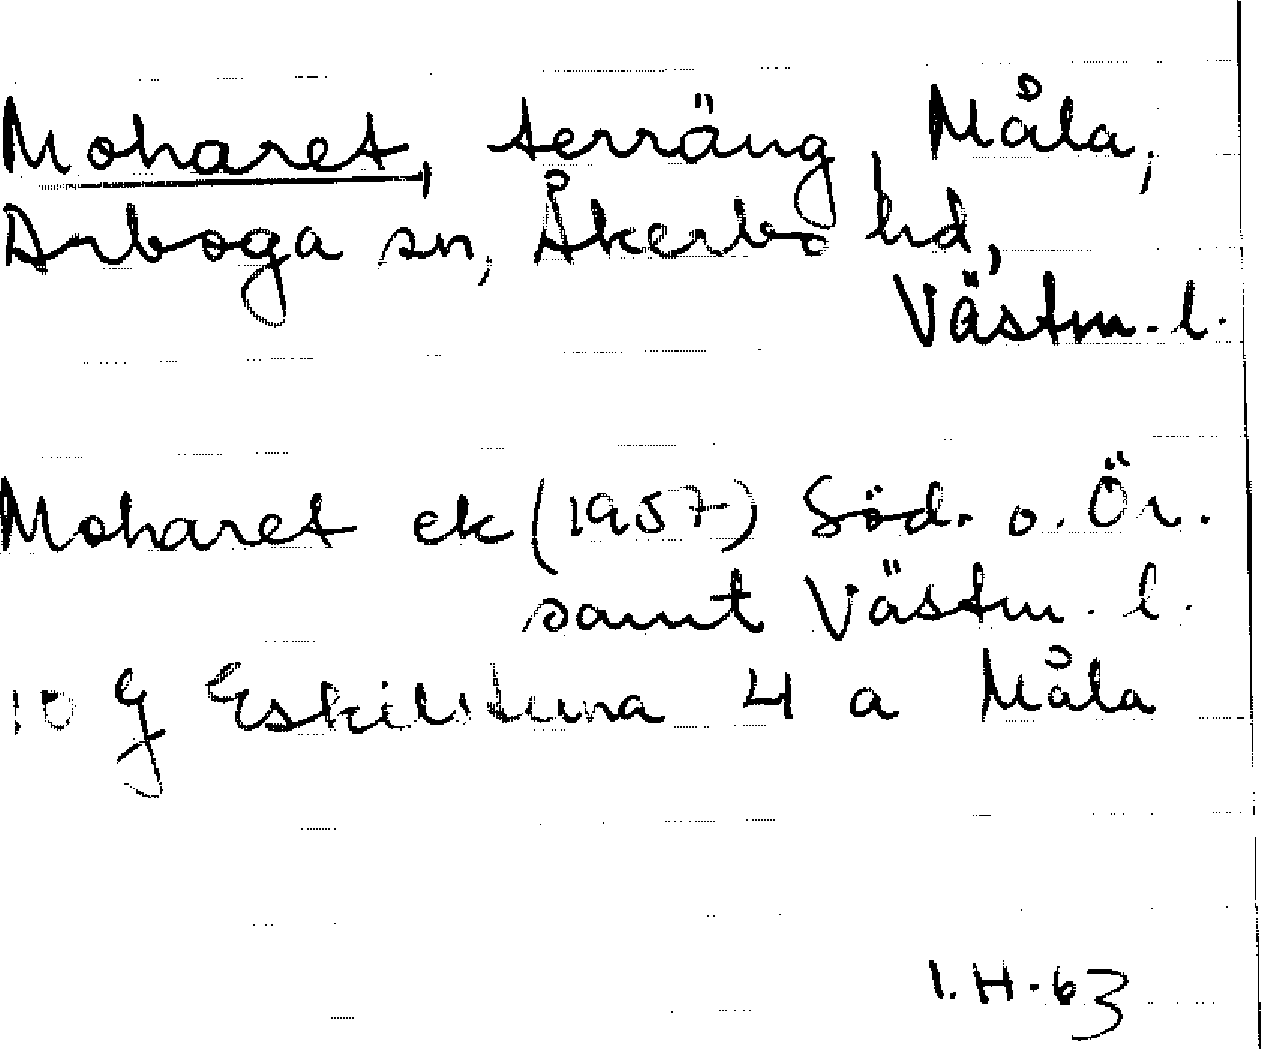 Moharet, terräng, Måla,
Arboga sn, Åkerbo hd,
Västm. l.
Moharet ek (1957) Söd. o. Ör.
samt Västm. l.
10 G Eskilstuna 4 a Måla
I. H-63